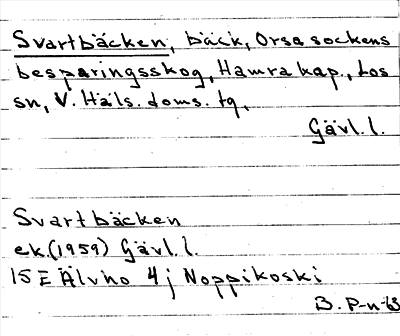 Svartbäcken, bäck, Orsa sockens
besparingsskog, Hamra kap., Los
sn, V. Häls. doms. tg,
Gävl. l.
Svartbäcken
ek. (1959) Gävl. l.
15E Älvho 4j Noppikoski
B. P-n-63